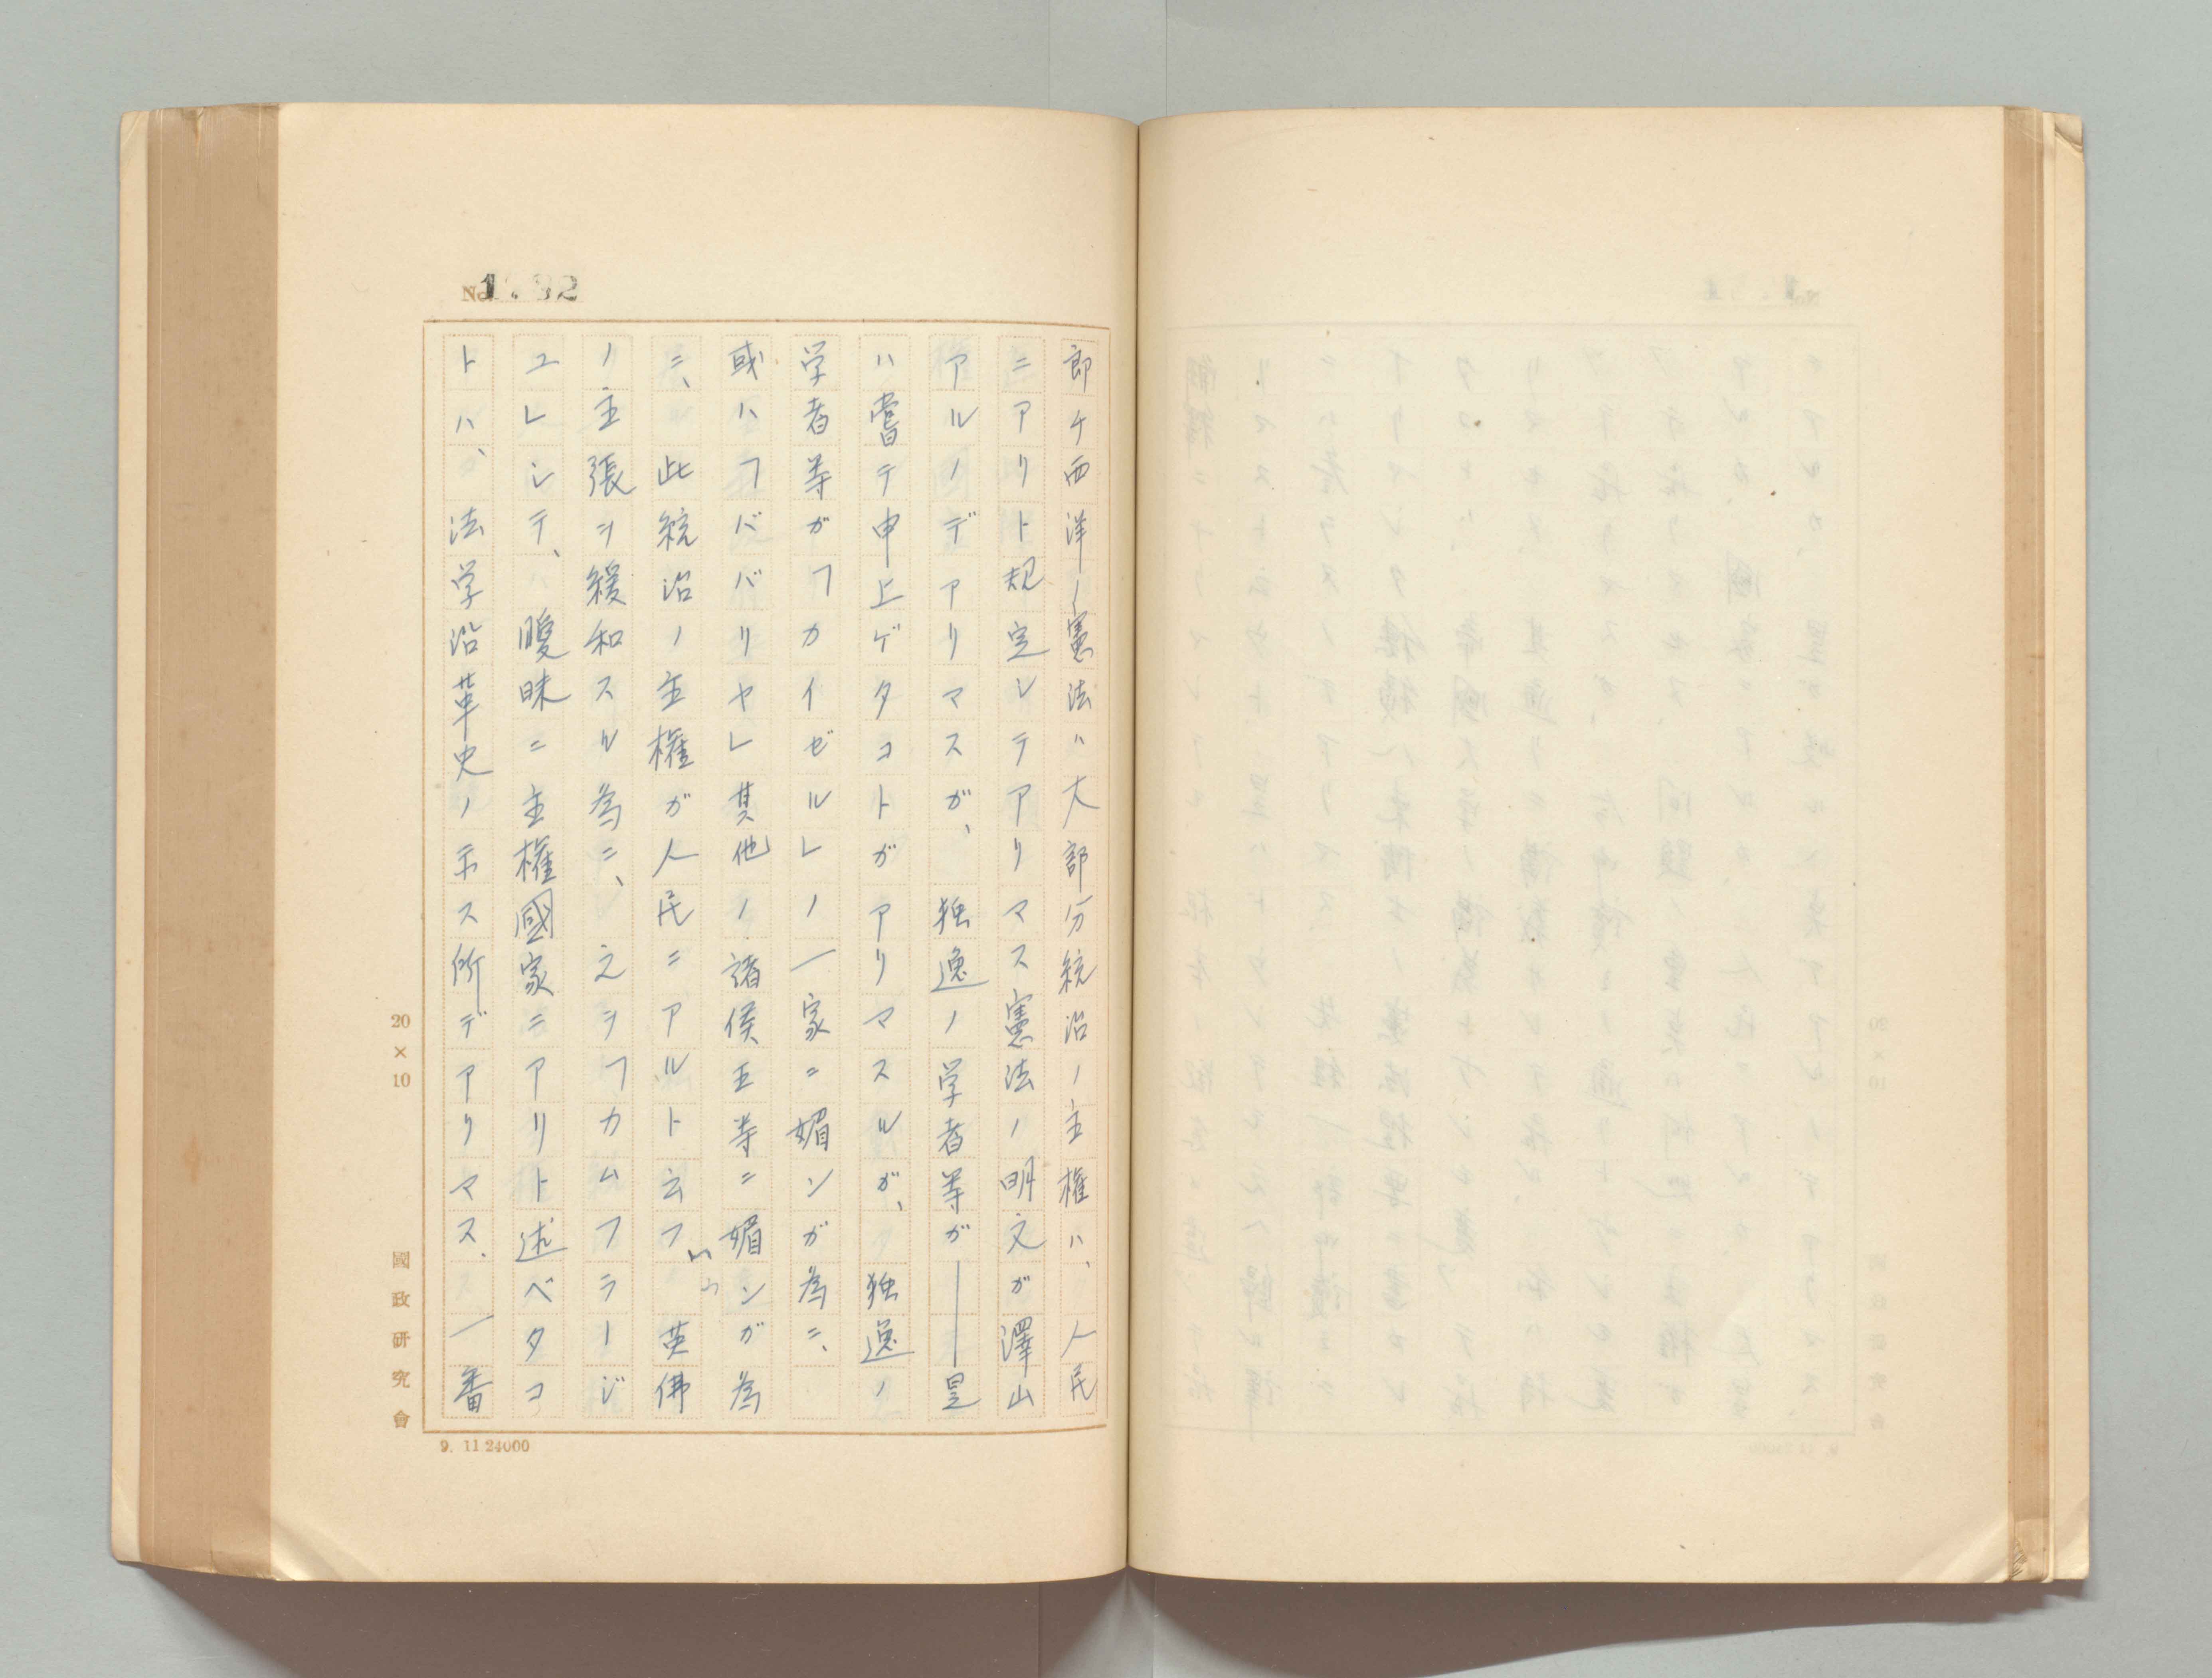 No. 1732
即チ西洋ノ憲法ハ大部分統治ノ主権ハ、人民
ニアリト規定シテアリマス憲法ノ明文ガ澤山
アルノデアリマスガ、独逸ノ学者等ガ――是
ハ嘗テ申上ゲタコトガアリマスルガ、独逸ノ
学者等ガフカイゼルレノ一家ニ媚ンガ為ニ、
或ハフババリヤレ其他ノ諸侯王等ニ媚ンガ為
ニ、此統治ノ主権ガ人民ニアルト云フいう英佛
ノ主張ヲ緩和スル為ニ、之ヲフカムフラージ
ユレシテ、曖昧ニ主権國家ニアリト述ベタコ
トハ、法学沿革史ノ示ス所デアリマス、一番
20×10
國政研究會
9. 11 24000